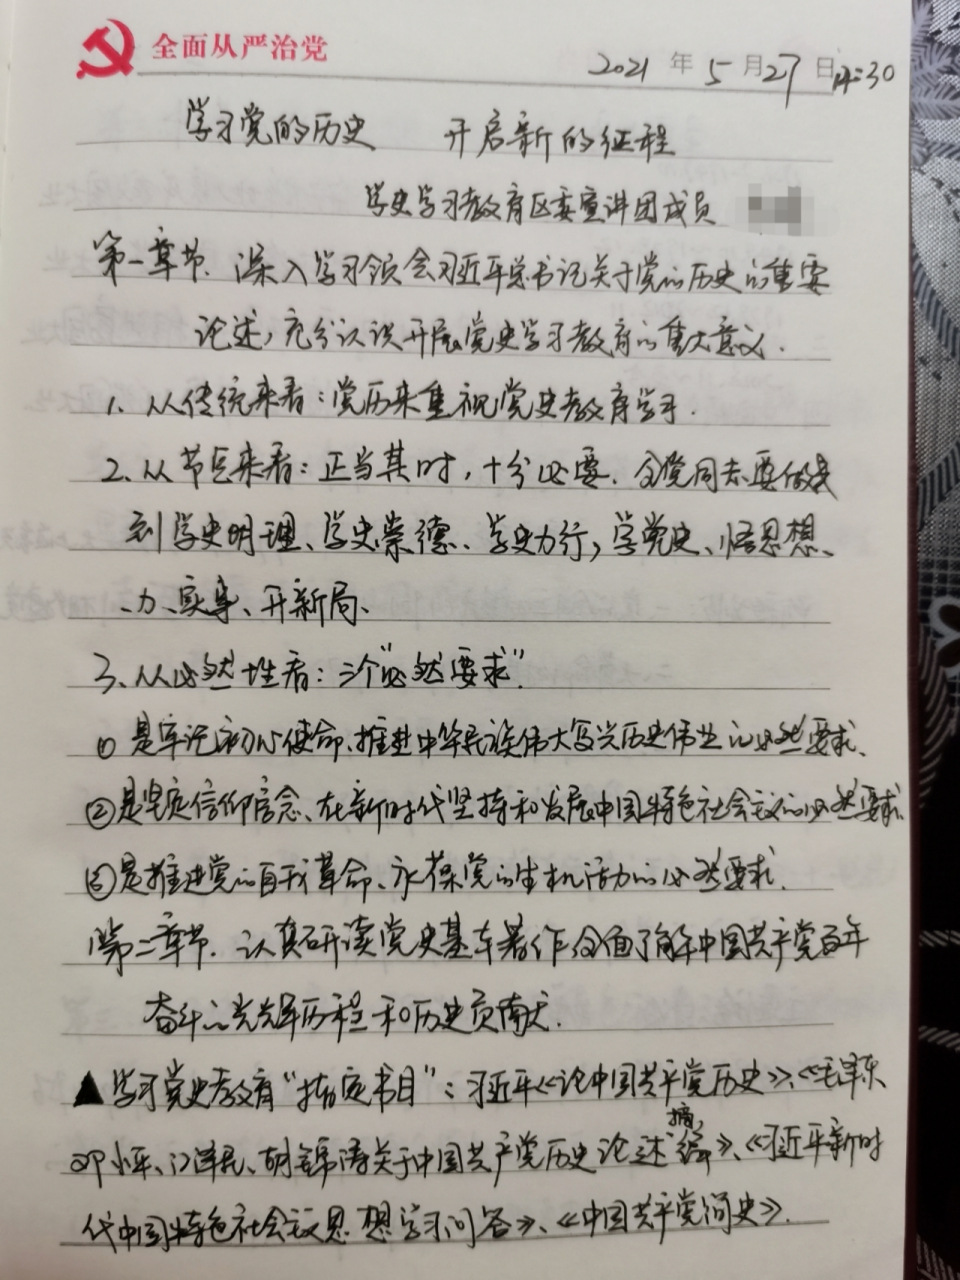 全面从严治党
2021年5月27日 14:30
学习党的历史 开启新的征程
学史学习教育区委宣讲团成员
第一章节.深入学习领会习近平总书记关于党的历史的重要
论述,充分认识开展党史学习教育的重大意义.
1.从传统来看:党历来重视党史教育学习.
2.从节点来看:正当其时,十分必要.全党同志要做
到学史明理、学史崇德、学史力行,学党史、悟思想、
办实事、开新局、
3、从必然性看:三个"必然要求".
① 是牢记初心使命、推进中华民族伟大复兴历史伟业的必然要求、
②是坚定信仰信念、在新时代坚持和发展中国特色社会主义的必然要求
③是推进党的自我革命、永葆党的生机活力的必然要求.
第二章节.认真研读党史基本著作 全面了解中国共产党百年
奋斗的光辉历程和历史贡献.
▲学习党史教育"指定书目":习近平《论中国共产党历史》、《毛泽东
邓小平、江泽民、胡锦涛关于中国共产党历史论述摘编》、《习近平新时
代中国特色社会主义思想学习问答》、《中国共产党简史》.